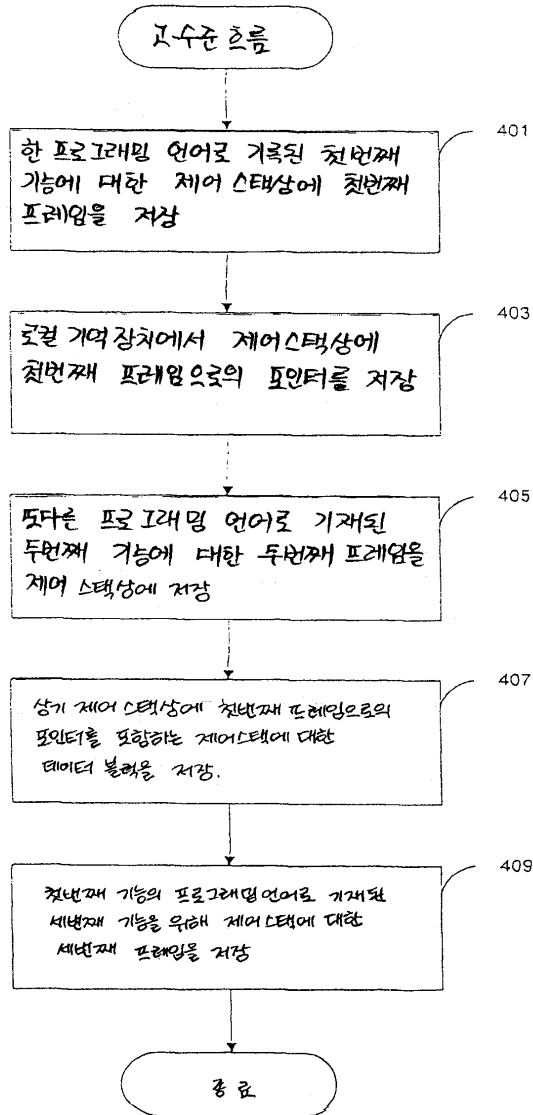 고수준 흐름
401
한 프로그래밍 언어로 기록된 첫번째
기능에 대한 제어 스택상에 첫번째
프레임을 저장
403
로컬 기억 장치에서 제어스택상에
첫번째 프레임으로의 포인터를 저장
405
또다른 프로그래밍 언어로 기재된
두번째 기능에 대한 두번째 프레임을
제어 스택상에 저장
407
상기 제어 스택상에 첫번째 프레임으로의
포인터를 포함하는 제어스택에 대한
데이터 블럭을 저장.
409
첫번째 기능의 프로그래밍언어로 기재된
세번째 기능을 위해 제어스택에 대한
세번째 프레임을 저장
종료